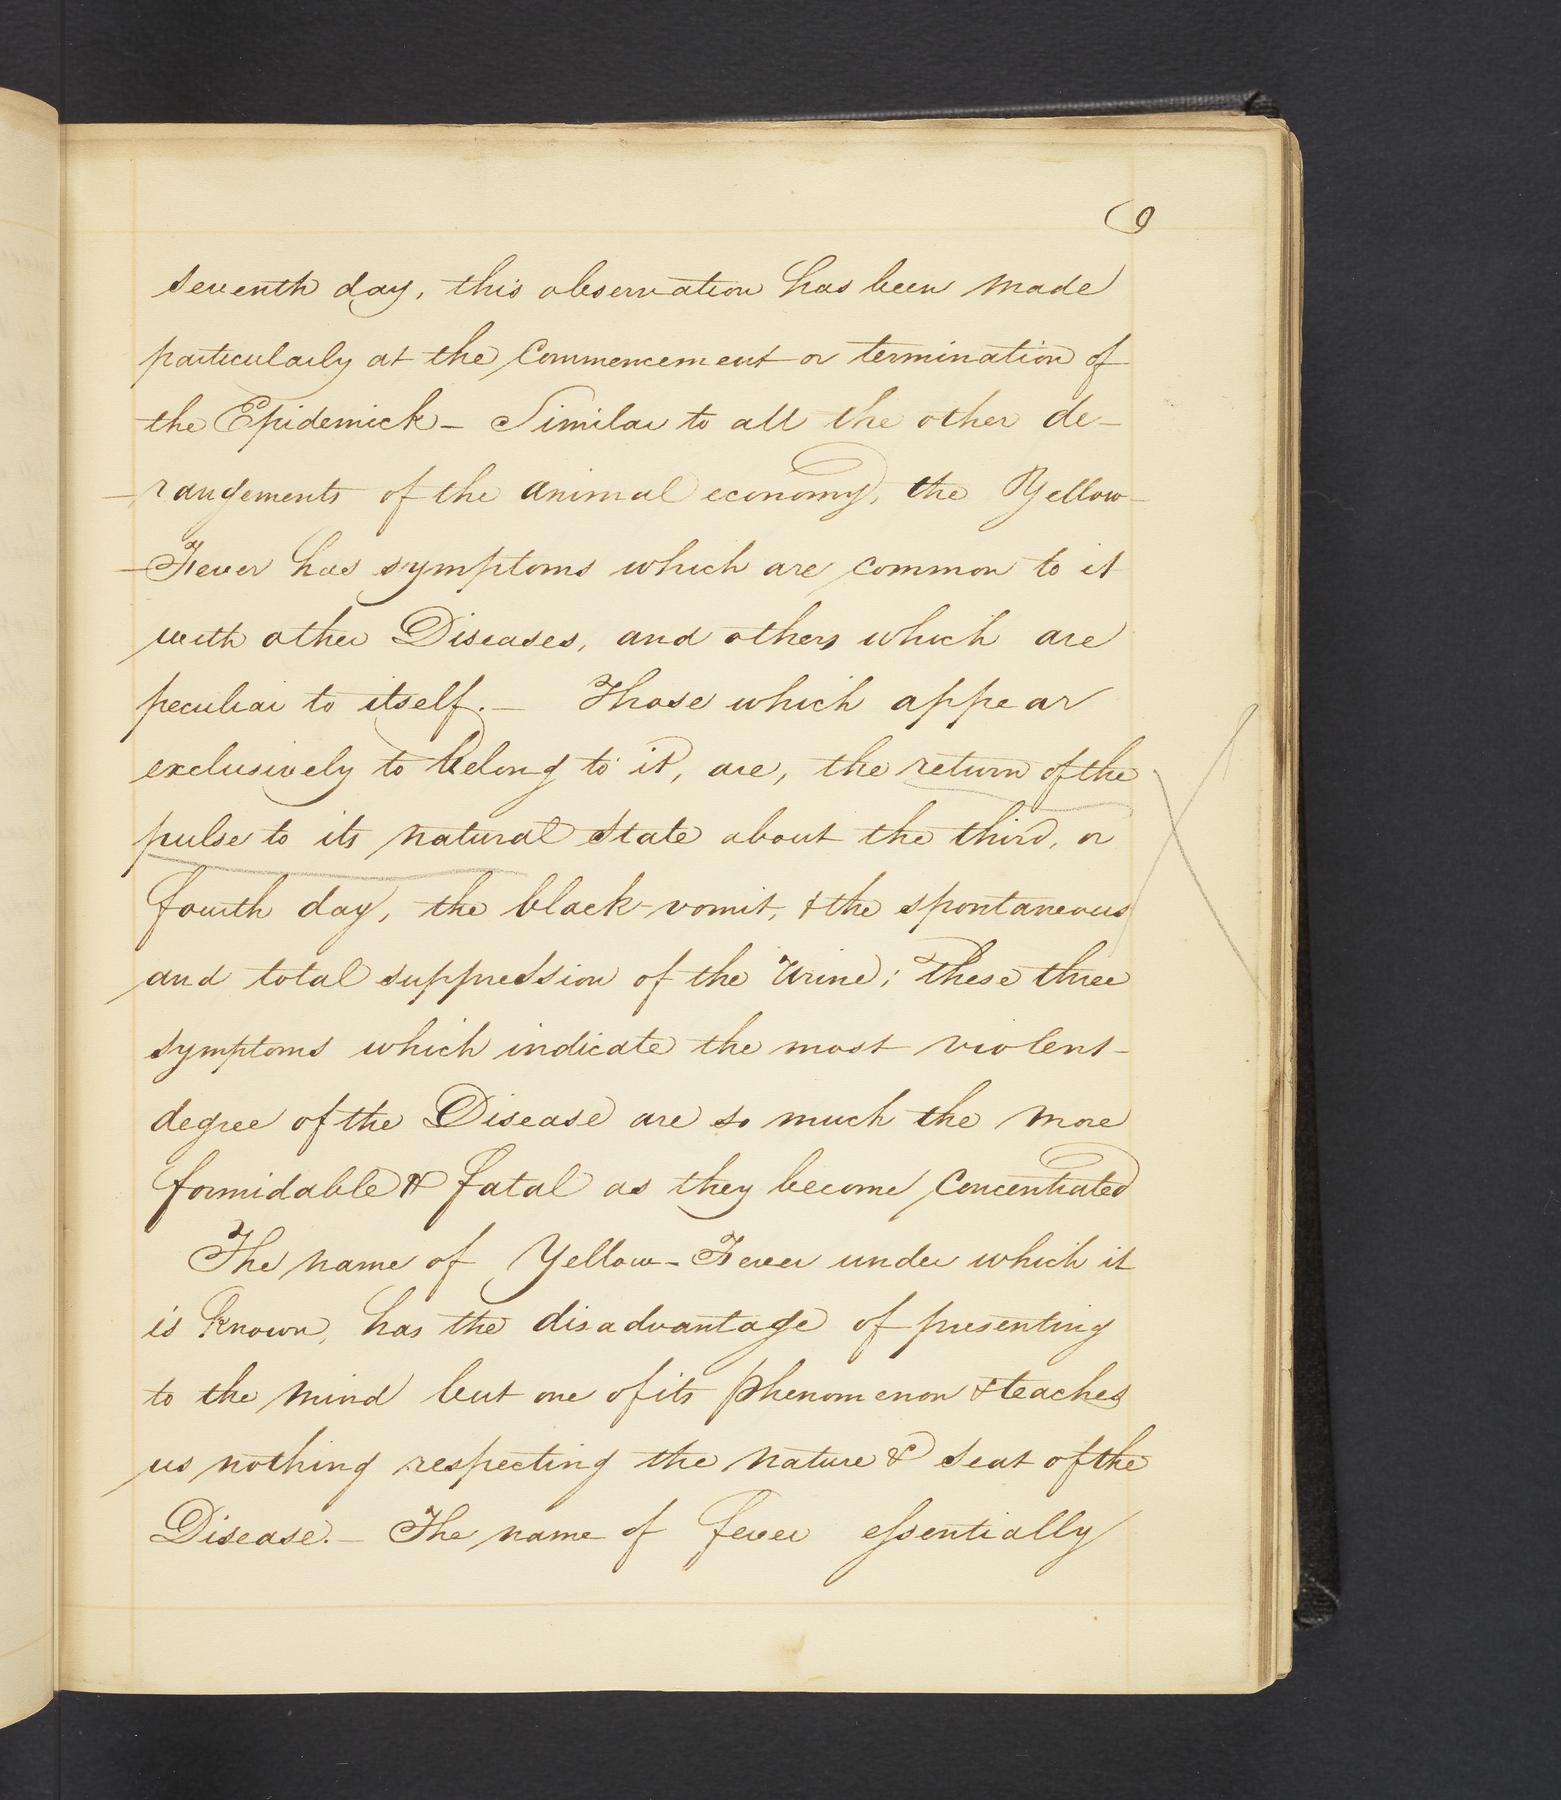 9
seventh day, this observation has been made
particularly at the Commencement or termination of
the Epidemick – Similar to all the other de–
–rangements of the animal economy, the Yellow–
–Fever has symptoms which are common to it
with other Diseases, and others which are
peculiar to itself. – Those which appear
exclusively to belong to it, are, the return of the
pulse to its natural State about the third, or
fourth day, the black-vomit, & the spontaneous
and total suppression of the Urine; these three
symptoms which indicate the most violent–
degree of the Disease are so much the more
formidable & fatal as they become Concentrated
The name of Yellow–Fever under which it
is known, has the disadvantage of presenting
to the mind but one of its phenomenon & teaches
us nothing respecting the nature & seat of the
Disease. – The name of fever eſsentially